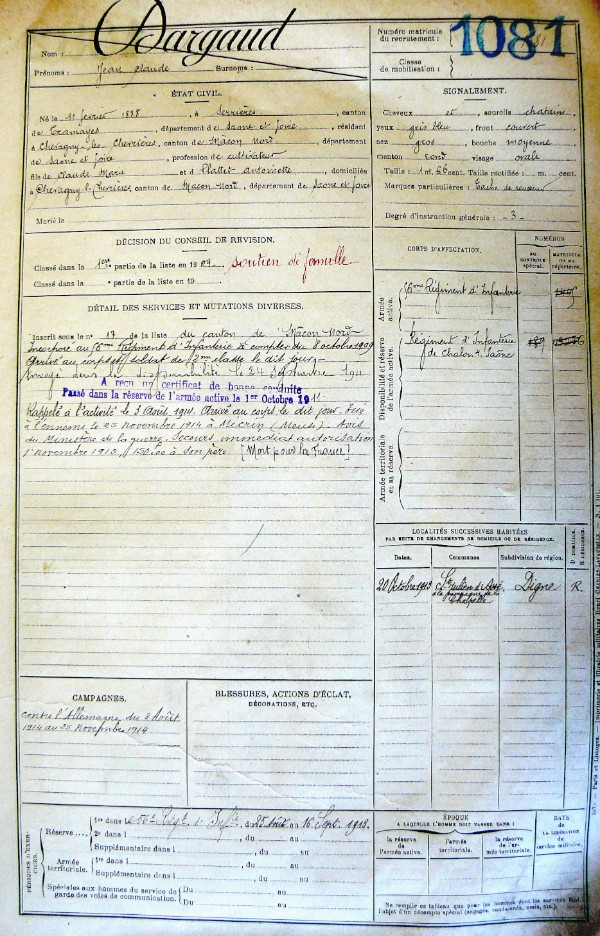 Dargaud
Nom :
Prénoms : Jean Claude Surnoms :
Numéro matricule
du recrutement :
1081
Classe
de mobilisation :
ÉTAT CIVIL.
Né le 11 février 1888, à Serrières, canton
de Tramayes, département de Saone et Loire, résidant
à Chevagny-les Chevrières, canton de Macon Nord, département
de Saone et Loire, profession de cultivateur
fils de Claude Marie et d Platret antoinette, domiciliés
à Chevagny-les Chevrières, canton de Macon-Nord, département de Saone et Loire
Marié le
SIGNALEMENT.
Cheveux et sourcils chatains,
yeux gris bleu, front couvert
nez gros, bouche moyenne
menton rond visage ovale
Taille : 1 m. cent. Taille rectifiée : m. cent.
Marques particulières : Tache de rousseur
Degré d'instruction générale : 3
DÉCISION DU CONSEIL DE REVISION.
Classé dans la 1ère partie de la liste en 1909 soutien de famille
Classé dans la partie de la liste en 19
CORPS D'AFFECTATION.
NUMÉROS
AU CONTRÔLE spécial.
MATRICULE OU AU répertoire.
Armée active.
56me Régiment d'Infanterie
Disponibilité et réserve de l'armée active.
Régiment d'Infanterie
de Chalon s. Saône
Armée territoriale et sa réserve.
DÉTAIL DES SERVICES ET MUTATIONS DIVERSES.
Inscrit sous le n° 17 de la liste du canton de Mâcon-Nord
Incorporé au 56me Régiment d'Infanterie à compter du 8 octobre 1909
Arrivé au corps et soldat de 2me classe le dit jour
Envoyé dans la disponibilité le 24 Septembre 1911
A reçu un certificat de bonne conduite
Passé dans la réserve de l'armée active le 1er Octobre 1911
Rappelé à l'activité le 3 Août 1914. Arrivé au corps le dit jour. Tué
à l'ennemi le 25 novembre 1914 à Mécrin (Meuse). Avis
du Ministère de la guerre. Secours immédiat autorisation
1er novembre 1915, 150,00 à son père [Mort pour la France]
LOCALITÉS SUCCESSIVES HABITÉES
PAR SUITE DE CHANGEMENTS DE DOMICILE OU DE RÉSIDENCE.
D. domicile. R. résidence.
Dates. Communes Subdivision de région.
20 Octobre 1913 St Julien d'Asse, Digne R.
à la campagne de la
Chapelle
CAMPAGNES.
contre l'Allemagne du 3 Août
1914 au 25 novembre 1914
BLESSURES, ACTIONS D'ÉCLAT,
DÉCORATIONS, ETC.
PÉRIODES D'EXERCICES.
Réserve ....
1re dans le 56e Régt d'Infie, du 25 août au 16 Sept. 1913.
2e dans l , du au
Supplémentaire dans l , du au
Armée territoriale.
1re dans l , du au
Supplémentaire dans l , du au
Spéciales aux hommes du service de
garde des voies de communication.
Du au
Du au
ÉPOQUE
A LAQUELLE L'HOMME DOIT PASSER DANS :
la réserve de l'armée active.
l'armée territoriale.
la réserve de l'armée territoriale.
DATE
de
LA LIBÉRATION
du
service militaire.
Ne remplir ce tableau que pour les hommes dont les services font
l'objet d'un décompte spécial (engagés, condamnés, omis, etc.).